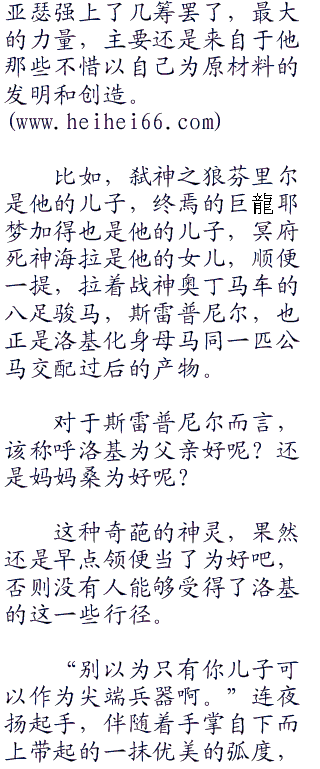 亚瑟强上了几筹罢了，最大
的力量，主要还是来自于他
那些不惜以自己为原材料的
发明和创造。
(www.heihei66.com)
比如，弑神之狼芬里尔
是他的儿子，终焉的巨龍耶
梦加得也是他的儿子，冥府
死神海拉是他的女儿，顺便
一提，拉着战神奥丁马车的
八足骏马，斯雷普尼尔，也
正是洛基化身母马同一匹公
马交配过后的产物。
对于斯雷普尼尔而言，
该称呼洛基为父亲好呢？还
是妈妈桑为好呢？
这种奇葩的神灵，果然
还是早点领便当了为好吧，
否则没有人能够受得了洛基
的这一些行径。
“别以为只有你儿子可
以作为尖端兵器啊。”连夜
扬起手，伴随着手掌自下而
上带起的一抹优美的弧度，